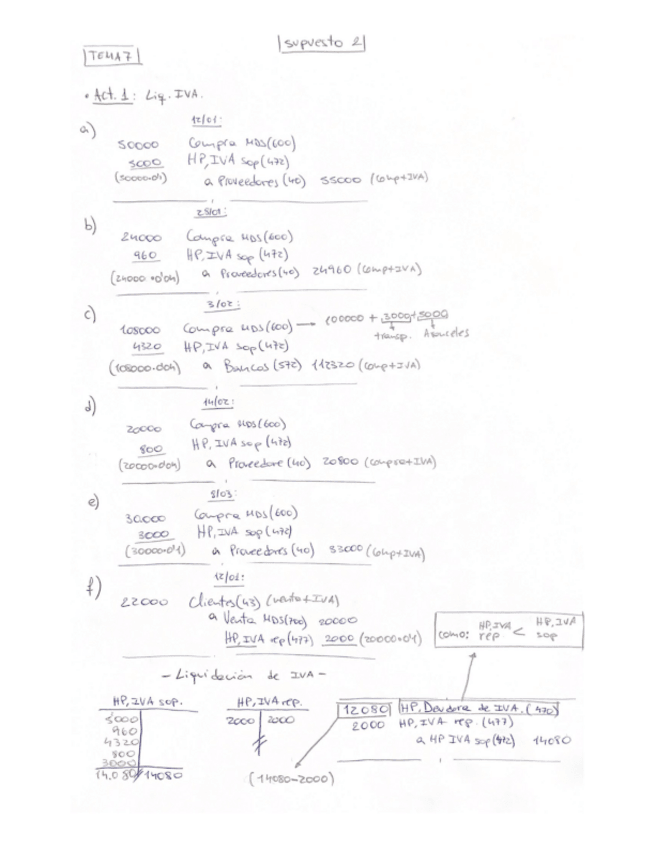 Supuesto 2
TEMA 7
• Act. 1: Liq. IVA.
a) 12/01:
50000 Compra MDS (600)
5000 HP, IVA sop (472)
(50000·0'1) a Proveedores (40) 55000 (comp+IVA)
b) 25/01:
24000 Compra MDS (600)
960 HP, IVA sop (472)
(24000·0'04) a Proveedores (40) 24960 (comp+IVA)
c) 3/02:
108000 Compra MDS (600) → 100000 + 3000+5000
transp. Aranceles
4320 HP, IVA sop (472)
(108000·0'04) a Bancos (572) 112320 (comp+IVA)
d) 14/02:
20000 Compra MDS (600)
800 HP, IVA sop (472)
(20000·0'04) a Proveedore (40) 20800 (compra+IVA)
e) 8/03:
30.000 Compra MDS (600)
3000 HP, IVA sop (472)
(30000·0'1) a Proveedores (40) 33000 (comp+IVA)
f)
22000 Clientes (43) (venta+IVA)
a Venta MDS (700) 20000
HP, IVA rep (477) 2000 (20000·0'1)
como: HP, IVA rep < HP, IVA sop
- Liquidación de IVA -
HP, IVA sop. HP, IVA rep.
5000 2000 2000
960
4320
800
3000
14.080 14080
12080 HP, Deudora de IVA. (470)
2000 HP, IVA rep. (477)
a HP IVA sop (472) 14080
(14080-2000)